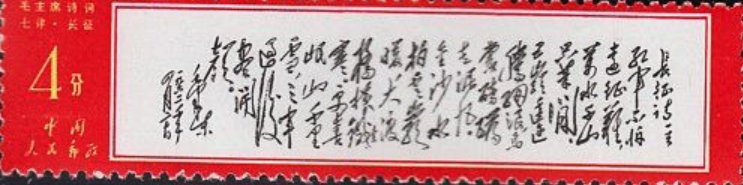 毛主席诗词
七律·长征
4分
中国
人民邮政
长征诗一首
红军不怕
远征难
万水千山
只等闲
五岭逶迤
腾细浪乌
蒙磅礴
走泥丸
金沙水
拍云崖
暖大渡
桥横铁索
寒更喜
岷山千里
雪三军
过后
尽开
颜
毛泽东